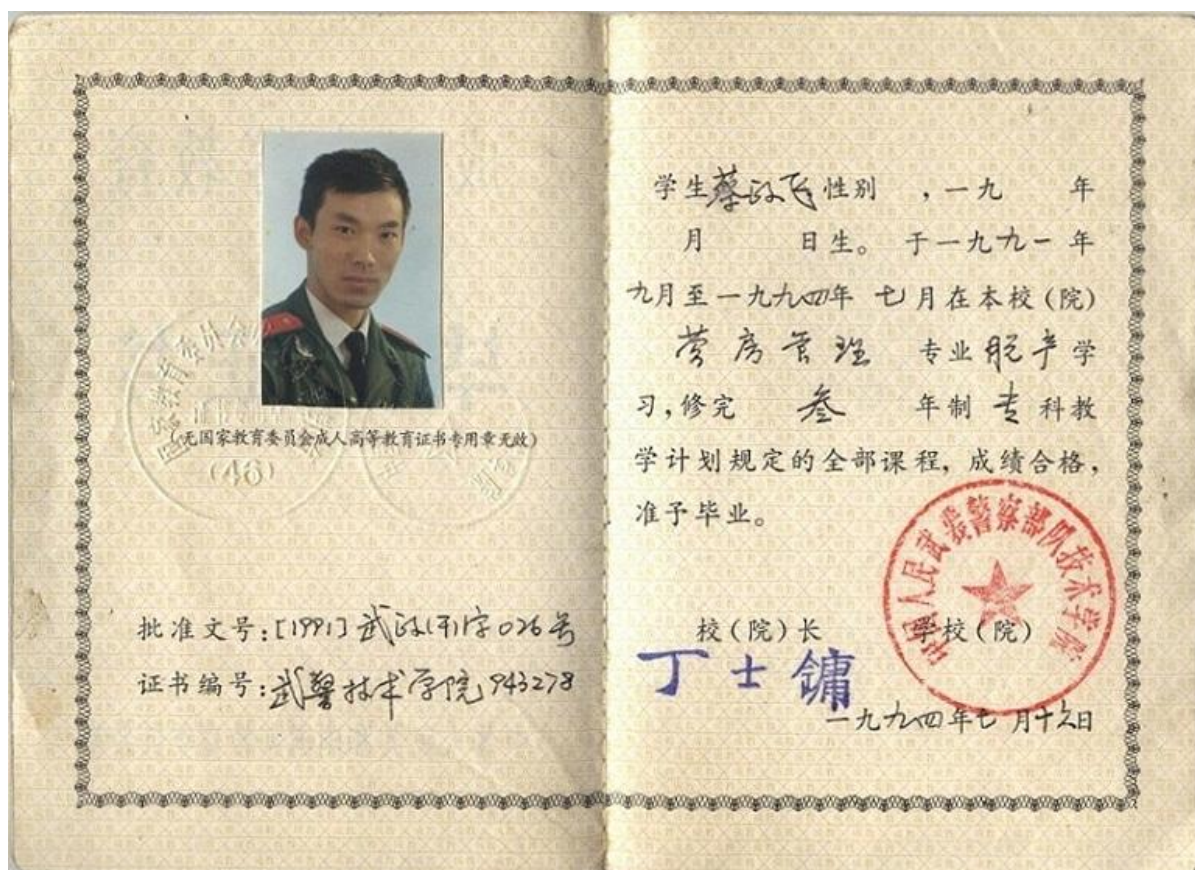 国家教育委员会
(46)
(无国家教育委员会成人高等教育证书专用章无效)
批准文号:[1991]武政(干)字026号
证书编号:武警技术学院943278
学生蔡政飞性别 ,一九 年
月 日生。于一九九一年
九月至一九九四年七月在本校(院)
营房管理 专业脱产学
习,修完 叁 年制 专 科教
学计划规定的全部课程,成绩合格,
准予毕业。
中国人民武装警察部队技术学院
校(院)长 学校(院)
丁士镛
一九九四年七月十六日